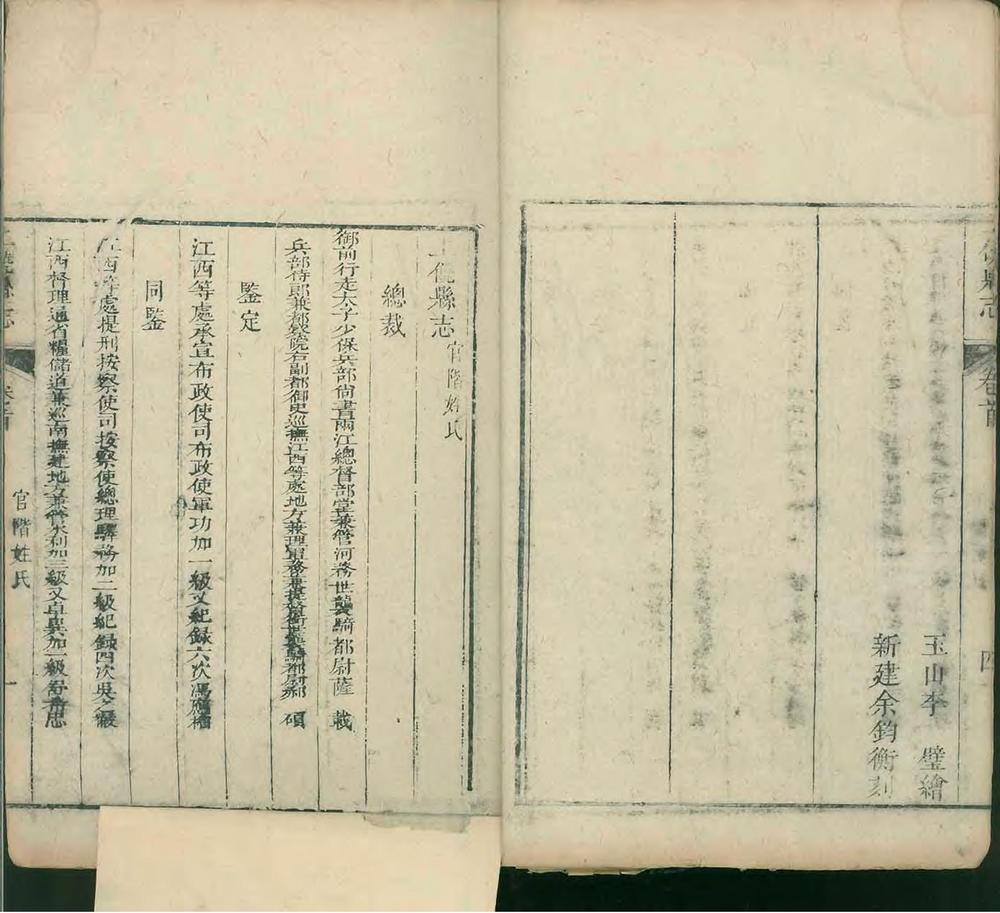 玉山李 璧繪
新建余鈞衡刻
饒縣志
卷首
四
上饒縣志 官階姓氏
總裁
御前行走太子少保兵部尚書兩江總督部堂兼管河務世襲騎都尉薩 載
兵部侍郎兼都察院右副都御史巡撫江西等處地方兼理軍務兼提督銜世襲騎都尉郝 碩
鑒定
江西等處承宣布政使司布政使軍功加一級又紀録六次馮應榴
同鑒
江西等處提刑按察使司按察使總理驛務加二級紀録四次吳之黻
江西督理通省糧儲道兼巡南撫建地方兼管水利加三級又卓異加一級
上饒縣志
卷首
官階姓氏
一